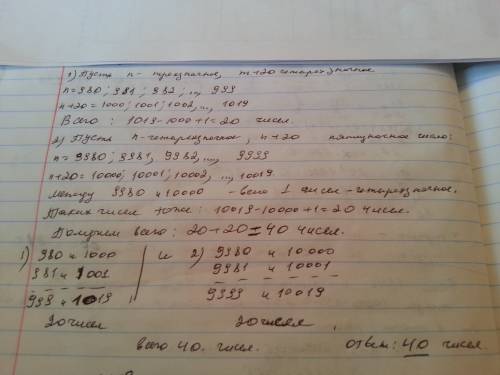 1) Пусть n - трехзначное, n+20 четырехзначное
n = 980; 981; 982; ..., 999
n+20 = 1000; 1001; 1002, ..., 1019
Всего: 1019-1000+1=20 чисел.
2) Пусть n-четырехзначное, n+20 пятизначное число:
n = 9980; 9981, 9982, ..., 9999
n+20 = 10000; 10001; 10002, ..., 10019
Между 9980 и 10000 - всего 1 чисел - четырехзначное.
Таких чисел тоже: 10019-10000+1=20 чисел.
Получаем всего: 20+20=40 чисел.
1) 980 и 1000 и 2) 9980 и 10000
981 и 1001 9981 и 10001
999 и 1019 9999 и 10019
20 чисел 20 чисел
всего 40. чисел. ответ: 40 чисел.